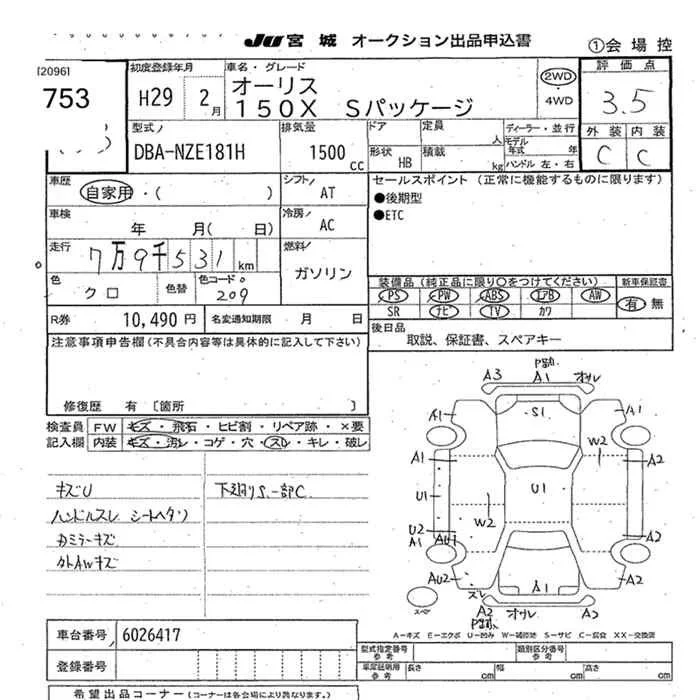 JU 宮城 オークション出品申込書
①会場控
[2096]
753
初度登録年月
H29 2月
車名・グレード
オーリス
150X Sパッケージ
2WD
・
4WD
評価点
3.5
外装 内装
C C
型式
DBA-NZE181H
排気量
1500 cc
ドア 定員 人
形状 HB 積載 kg
ディーラー・並行
モデル年式 年
ハンドル 左・右
車歴
自家用・( )
シフト
AT
セールスポイント (正常に機能するものに限ります)
●後期型
●ETC
車検
年 月( 日)
冷房
AC
走行
7万9千531 km
燃料
ガソリン
色
クロ
色替
色コード
209
装備品 (純正品に限り○をつけてください)
新車保証書
PS PW ABS エアB AW
SR ナビ TV カワ
有 無
R券 10,490 円 名変通知期限 月 日
後日品
取説、保証書、スペアキー
注意事項申告欄 (不具合内容等は具体的に記入して下さい)
修復歴 有 〔箇所 〕
検査員 FW キズ・飛石・ヒビ割・リペア跡・×要
記入欄 内装 キズ・汚レ・コゲ・穴・スレ・キレ・破レ
キズU
ハンドルスレ シートヘタリ
カトAWキズ
下廻りS.一部C
A3 A1
A1 S1 A1
W2
A1 A2
U1 U1
W2
U2
A1 AU1 A2
AU2 A1 A2
スレ
A2 A2
スペア
A-キズ E-エクボ U-凹み W-補修跡 S-サビ C-腐食 XX-交換済
車台番号 6026417
型式指定番号 参考
類別区分番号 参考
登録番号
車庫証明用 参考 長さ 幅 高さ
希望出品コーナー (コーナーは各会場により異なります。)